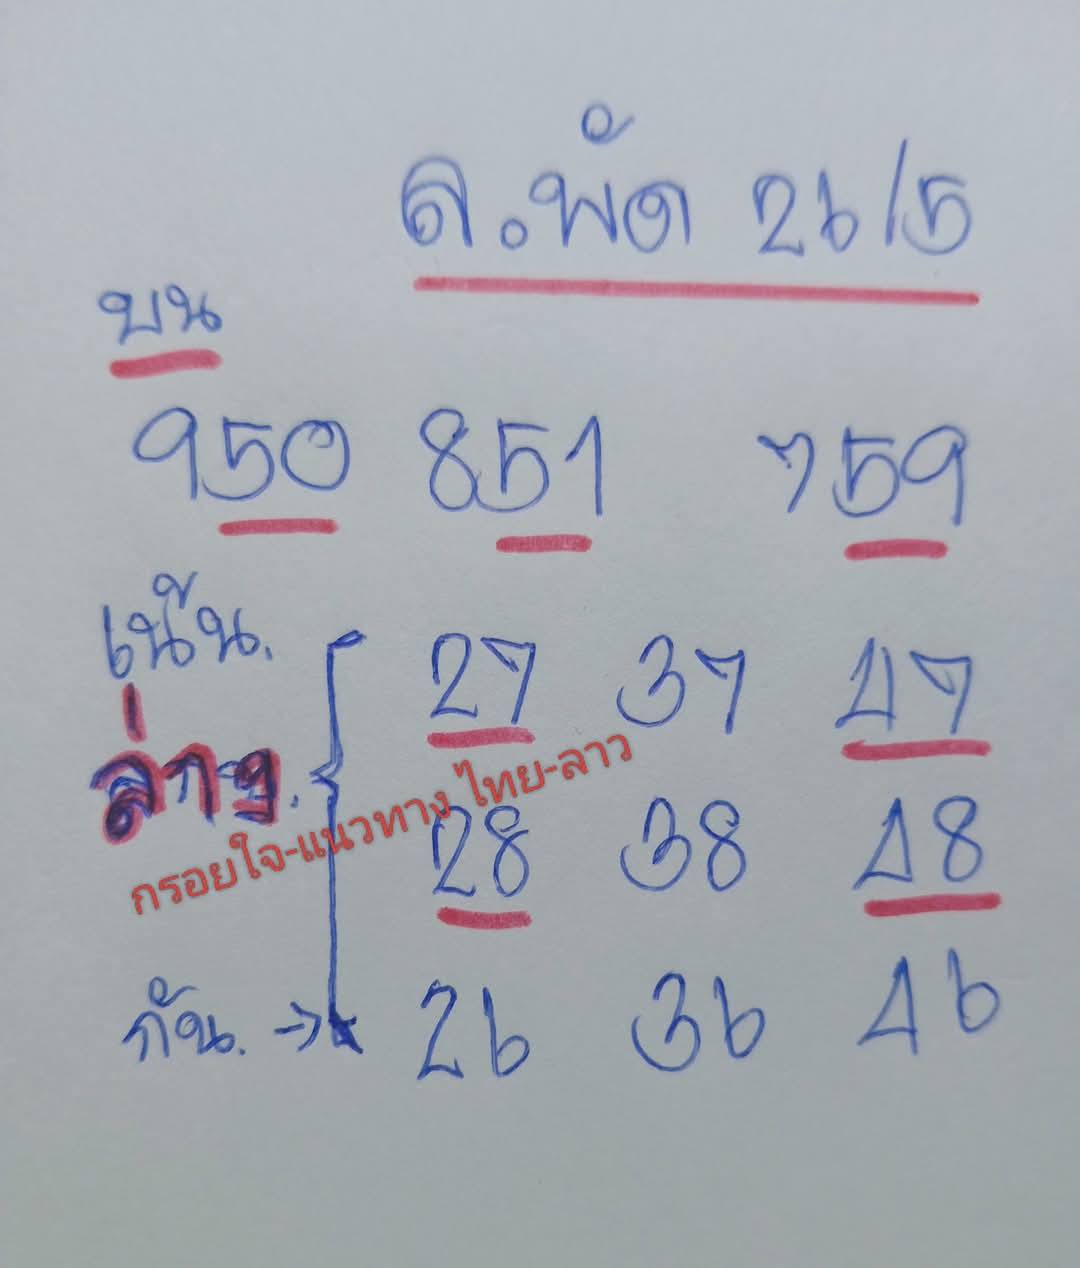 ล.พัด 26/5
บน
950 851 759
เน้น.
ล่าง.
27 37 47
กรอยใจ-แนวทาง ไทย-ลาว
28 38 48
กัน. → 26 36 46